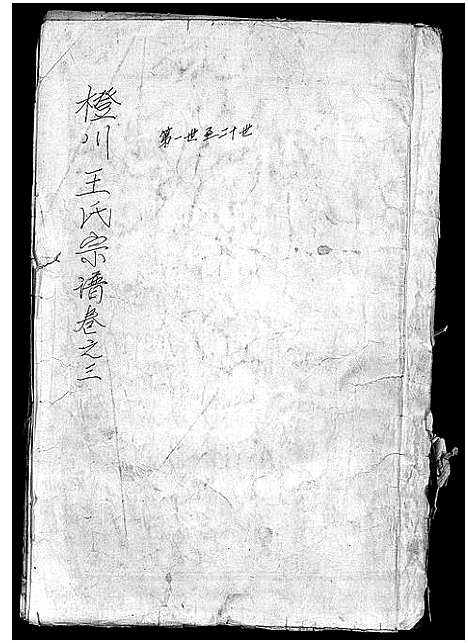 橙川王氏宗谱卷之三
第一世至二十世